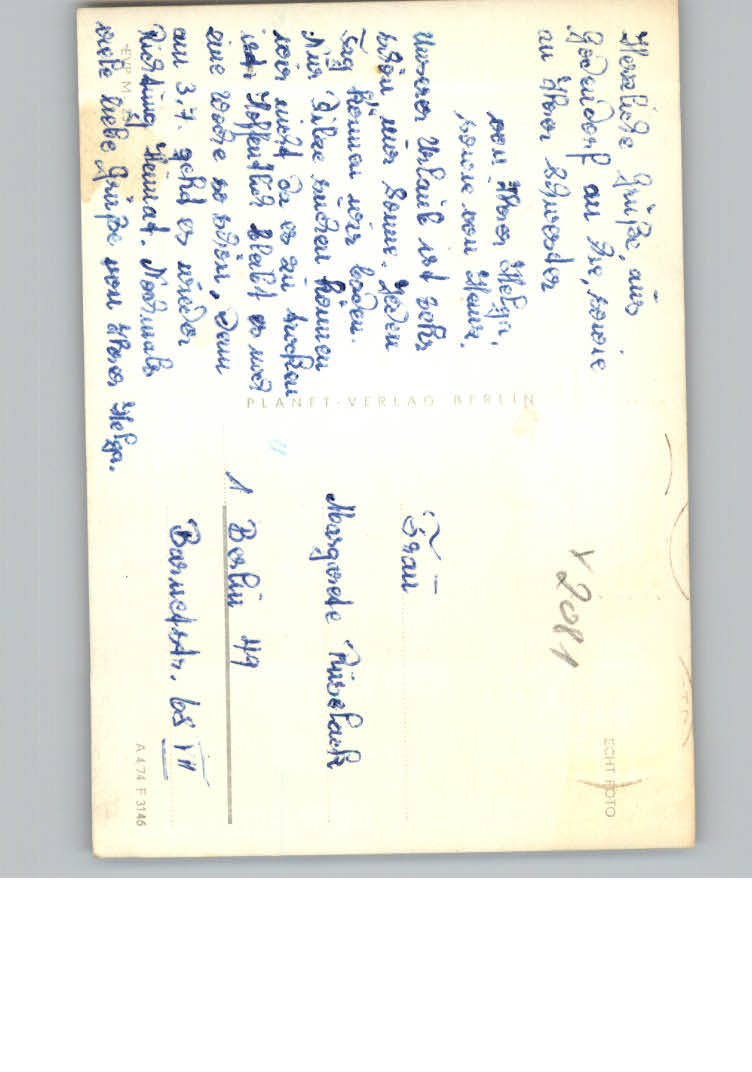 Herzliche Grüße, aus
Godendorf an Sie, sowie
an Ihrer Schwester
von Ihrer Helga,
sowie von Heinz.
Unserer Urlaub ist sehr
schön, nur Sonne. Jeden
Tag können wir baden.
Nur Pilze suchen können
wir nicht da es zu trocken
ist. Hoffentlich bleibt es noch
eine Woche so schön, denn
am 3.7. geht es wieder
Richtung Heimat. Nochmals
viele liebe Grüße von Ihrer Helga.
EVP M
PLANET-VERLAG BERLIN
Frau
Margarete
1 Berlin 49
Barnetstr. 65 VII
V 2081
ECHT FOTO
A 474 F 3146